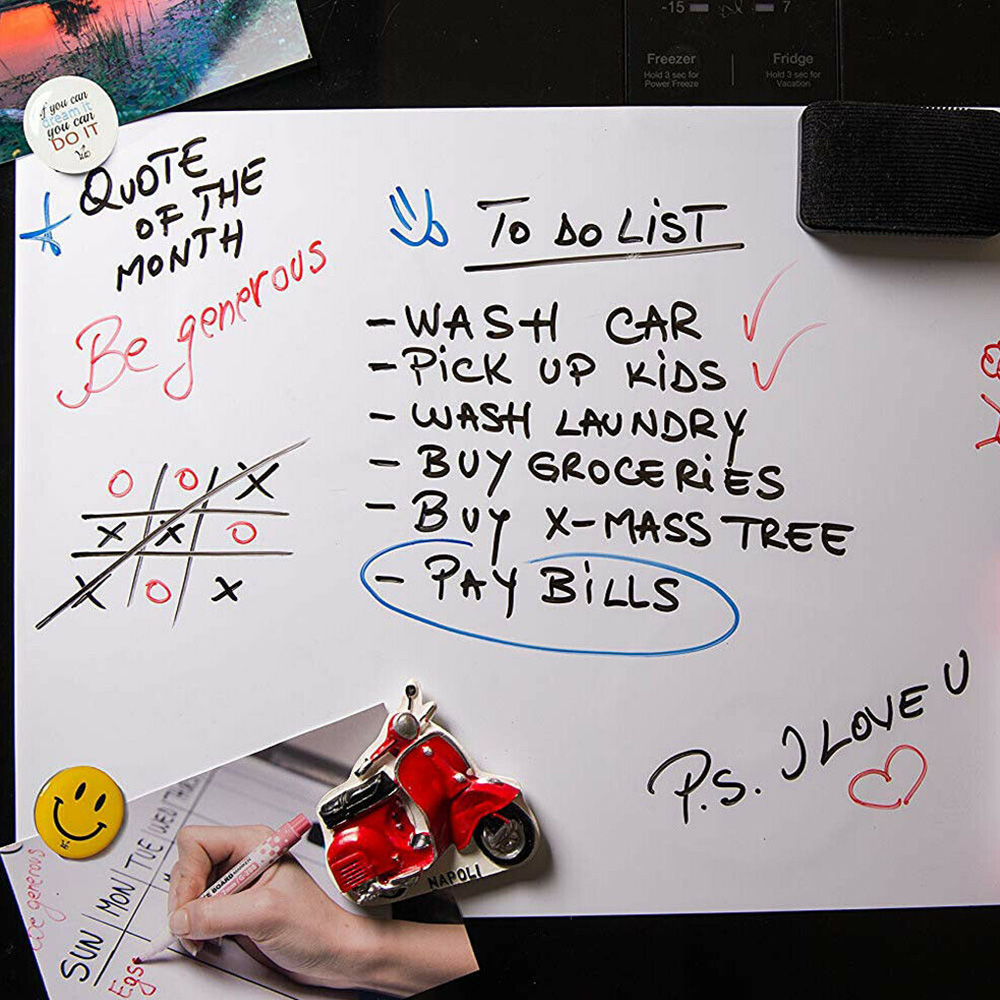 -15 7
Freezer Fridge
Hold 3 sec for Hold 3 sec for
Power Freeze Vacation
if you can
dream it
you can
DO IT
QUOTE
OF THE
MONTH
Be generous
TO DO LiST
- WASH CAR
- PiCK UP KiDS
- WASH LAUNDRY
- BUY GROCERiES
- BUY X-MASS TREE
- PAY BiLLS
O O X
X X O
X O X
P.S. I LOVE U
NAPOLI
generous
SUN MON TUE WED
BOARD MARKER
Egs